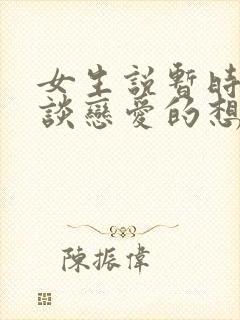 女生說暫時
談戀愛的想
陳振偉